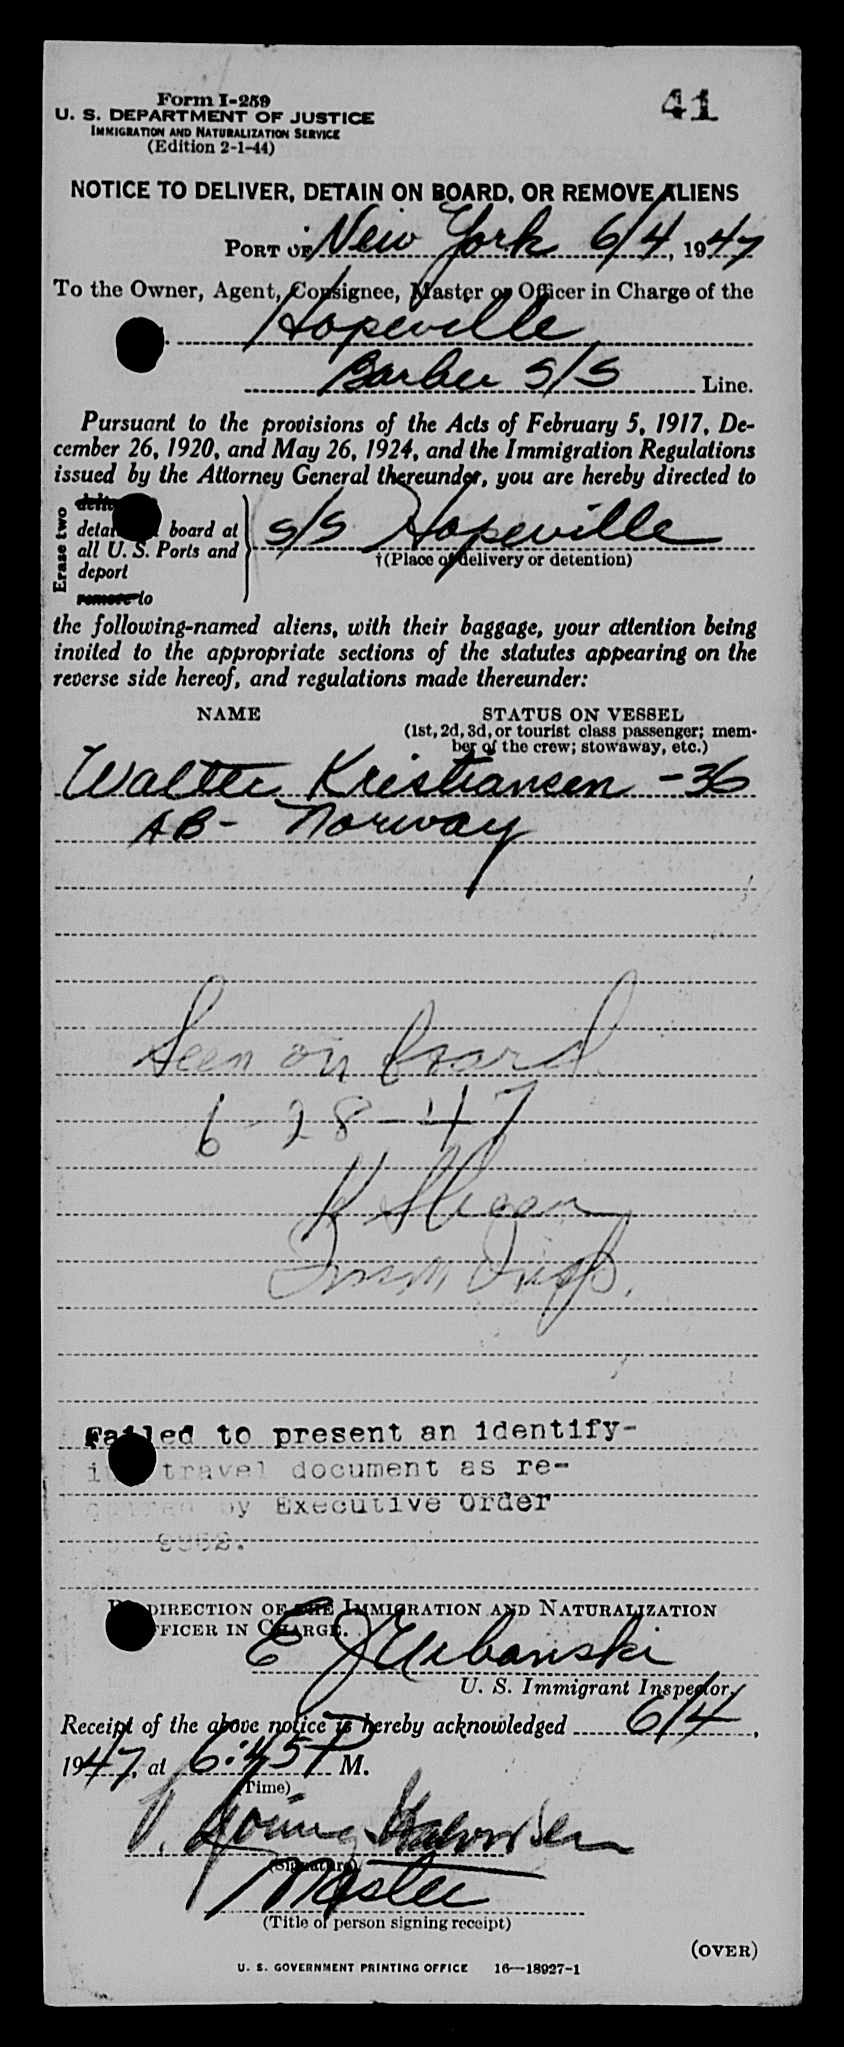 Form I-259
41
U. S. DEPARTMENT OF JUSTICE
IMMIGRATION AND NATURALIZATION SERVICE
(Edition 2-1-44)
NOTICE TO DELIVER, DETAIN ON BOARD, OR REMOVE ALIENS
PORT OF New York 6/4, 1947
To the Owner, Agent, Consignee, Master or Officer in Charge of the
Hopeville
Barber S/S Line.
Pursuant to the provisions of the Acts of February 5, 1917, De-
cember 26, 1920, and May 26, 1924, and the Immigration Regulations
issued by the Attorney General thereunder, you are hereby directed to
Erase two
board at
all U. S. Ports and
deport
remove to
S/S Hopeville
†(Place of delivery or detention)
the following-named aliens, with their baggage, your attention being
invited to the appropriate sections of the statutes appearing on the
reverse side hereof, and regulations made thereunder:
NAME STATUS ON VESSEL
(1st, 2d, 3d, or tourist class passenger; mem-
ber of the crew; stowaway, etc.)
Walter Kristiansen - 36
AB - Norway
Seen on board
6-28-47
Failed to present an identify-
travel document as re-
quired by Executive Order
BY DIRECTION OF THE IMMIGRATION AND NATURALIZATION
OFFICER IN CHARGE.
E J Urbanski
U. S. Immigrant Inspector.
Receipt of the above notice is hereby acknowledged 6/4,
1947, at 6:45 P M.
(Time)
(Signature)
Master
(Title of person signing receipt)
(OVER)
U. S. GOVERNMENT PRINTING OFFICE 16—18927-1